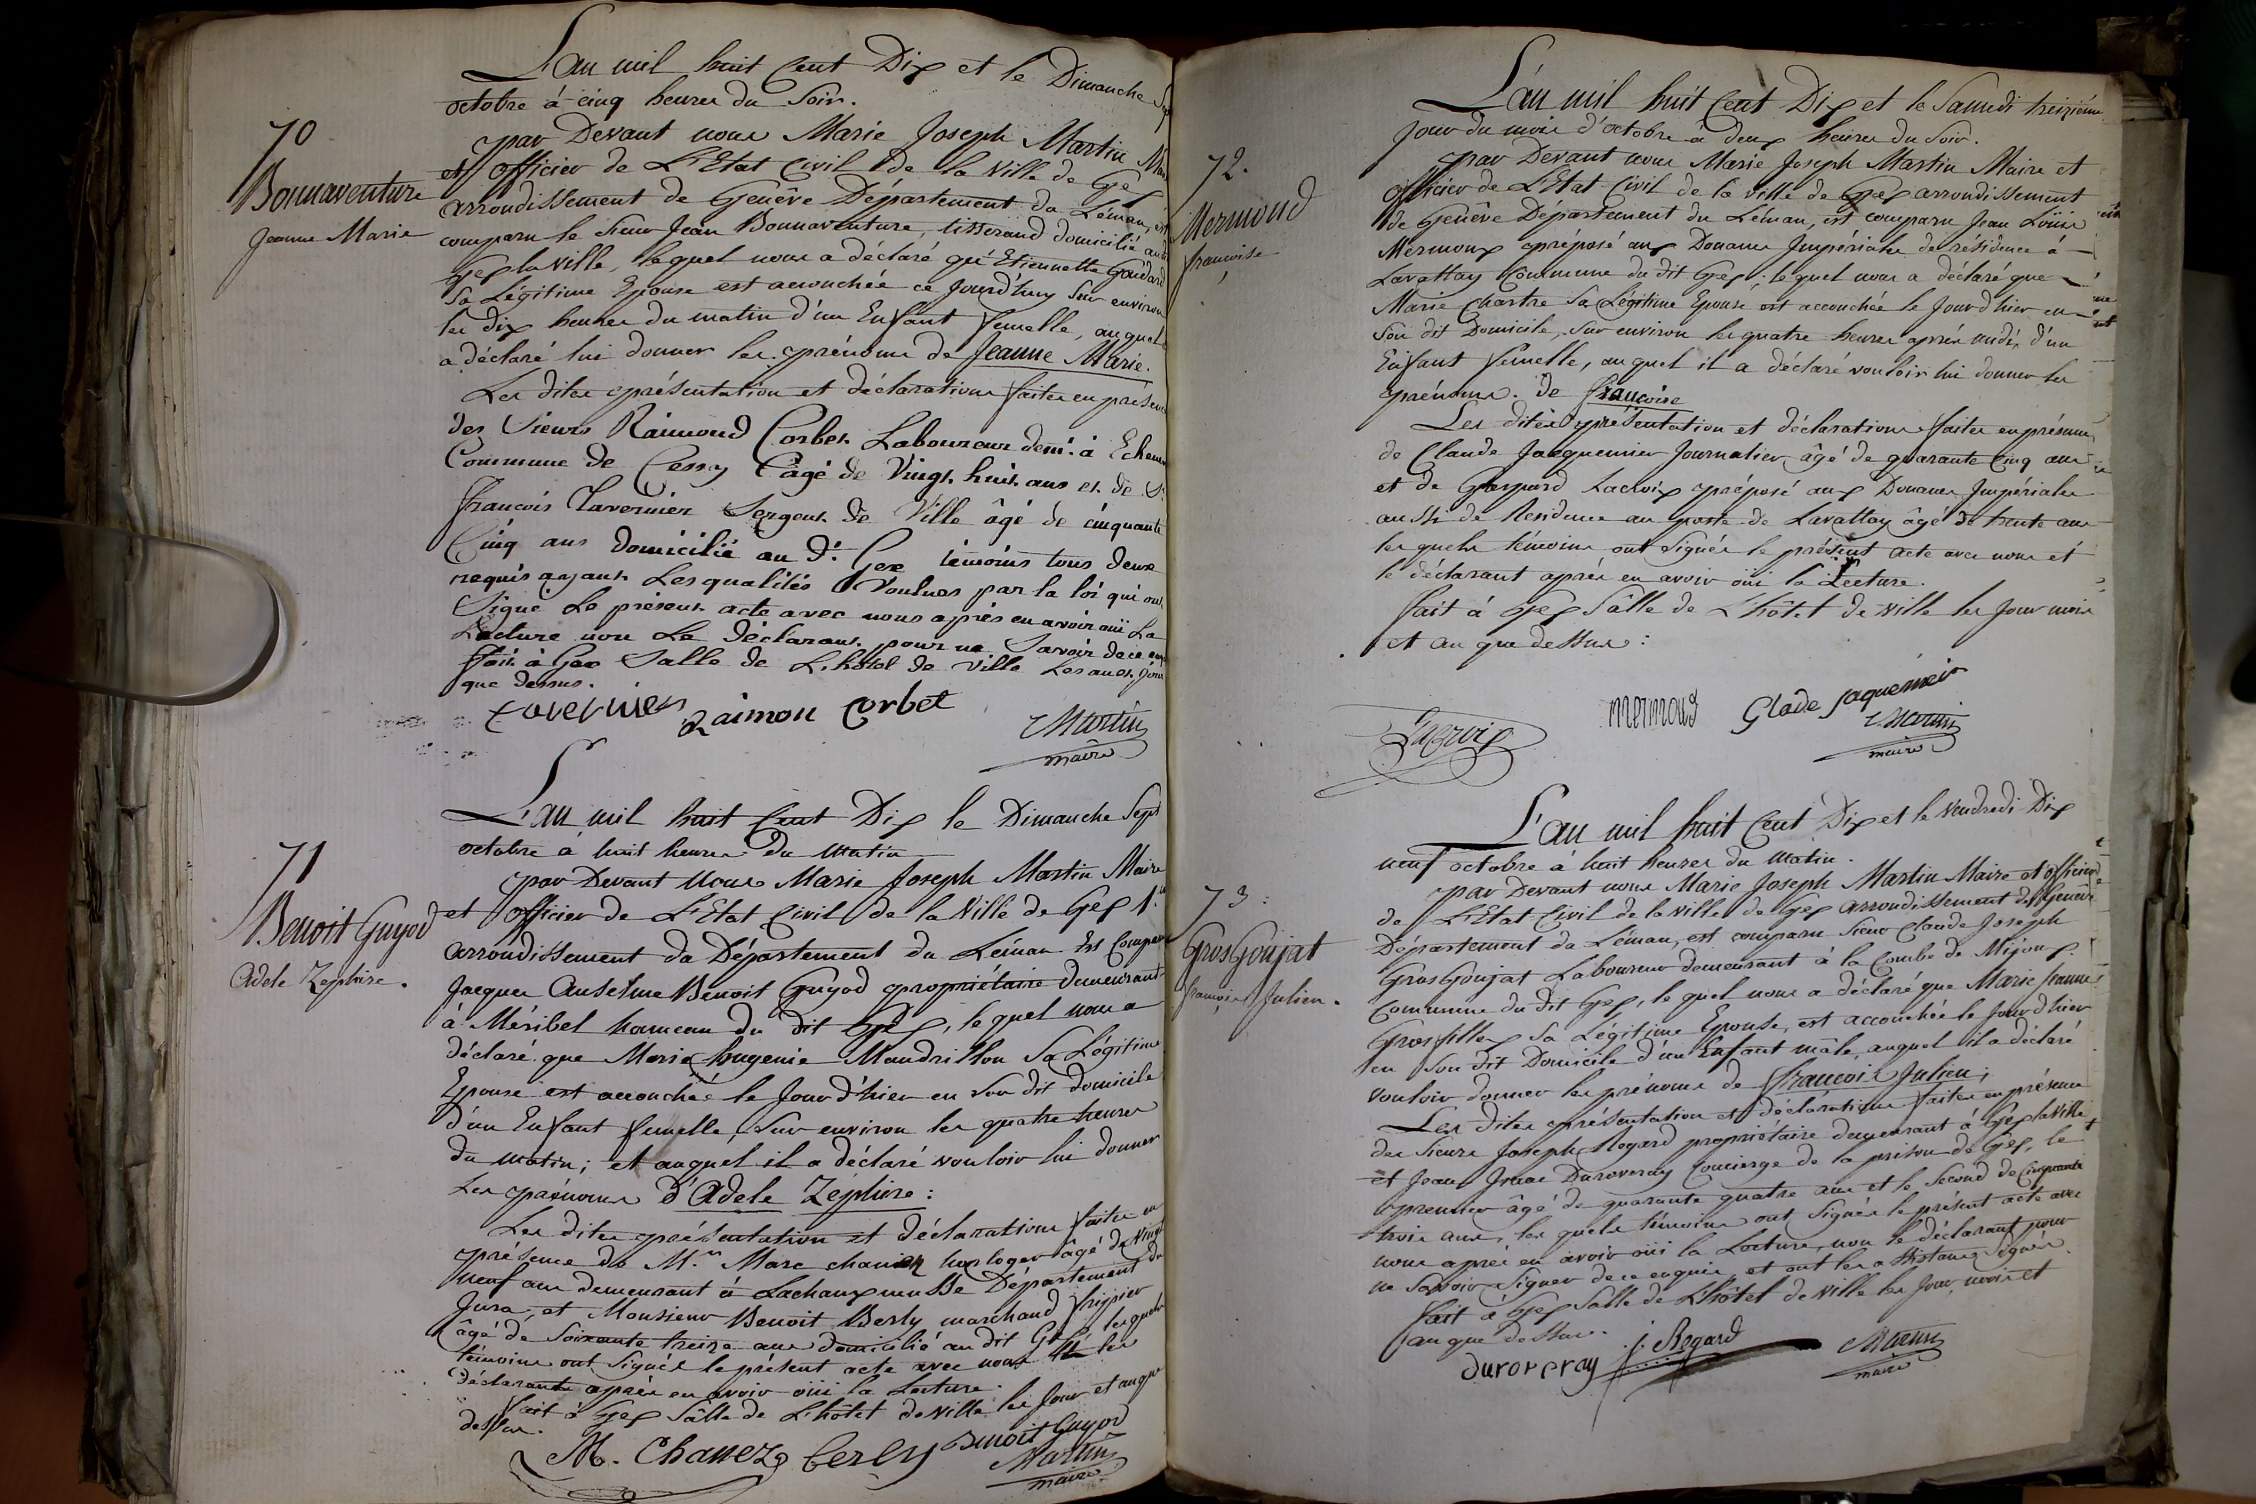 L'an mil huit Cent Dix et le Dimanche Sept
octobre à cinq heures du Soir.
70
par Devant nous Marie Joseph Martin Maire
et officier de L'Etat Civil de la Ville de Gex
Bonnaventure
arrondissement de Genêve Département du Léman, est
Jeanne Marie
comparu le Sieur Jean Bonnaventure, tisserand domicilié
Gex la Ville, lequel nous a déclaré qu'Etiennette Goudard
Sa Légitime Epouse est accouchée ce Jourd'huy Sur environ
les dix heures du matin d'un Enfant femelle, auquel
a déclaré lui donner les prénoms de Jeanne Marie.
Les dites présentation et déclarations faites en présence
des Sieurs Raimond Corbet Laboureur dem.t à
Commune de Cessy âgé de Vingt huit ans et de S.r
françois Tavernier Sergent de Ville âgé de cinquante
Cinq ans domicilié au d.t Gex témoins tous deux
requis ayant Les qualités Voulues par la loi qui ont
Signé Le présent acte avec nous après en avoir ouï La
Lecture non Le Déclarant pour ne Savoir de ce
fait à Gex Salle de L'hôtel de Ville Les an et Jour
que dessus.
tavernier Raimon Corbet
Martin
maire
L'an mil huit Cent Dix le Dimanche Sept
octobre à huit heures du Matin
71
par Devant Nous Marie Joseph Martin Maire
et officier de L'Etat Civil de la Ville de Gex 1.er
Benoit Guyod
arrondissement du Département du Léman Est Comparu
Adele Zephire.
Jacques Anselme Benoit Guyod propriétaire demeurant
à Méribel hameau du dit Gex, lequel nous a
déclaré que Marie Eugenie Mandrillon Sa Légitime
Epouse est accouchée le Jour d'hier en Son dit domicile
d'un Enfant femelle, Sur environ les quatre heures
du matin; et auquel il a déclaré vouloir lui donner
Les prénoms d'Adele Zephire:
Les dites présentation et déclarations faites en
présence de M.r Marc chanez horloger âgé de Vingt
neuf ans demeurant à Lachaumusse Département du
Jura, et Monsieur Benoit Berly marchand fripier
âgé de Soixante treize ans domicilié au dit Gex lesquels
témoins ont Signés le présent acte avec nous et les
déclarants après en avoir oüi la Lecture.
fait à Gex Salle de L'hôtel de Ville les Jour et an que
dessus.
M. Chanez Berly Benoit Guyod
Martin
maire
L'an mil huit Cent Dix et le Samedi treizième
Jour du mois d'octobre à deux heures du Soir.
72.
par Devant nous Marie Joseph Martin Maire et
officier de L'Etat Civil de la Ville de Gex arrondissement
Mermoud
de Genêve Département du Léman, est comparu Jean Loüis
françoise
Mermoux préposé aux Douanes Impériales de residence à
Lavattay Commune du dit Gex, lequel nous a déclaré que
Marie Chartre Sa Légitime Epouse est accouchée le Jour d'hier en
Son dit Domicile, Sur environ les quatre heures après midi, d'un
Enfant femelle, auquel il a déclaré vouloir lui donner les
prénoms de françoise
Les dites présentation et déclarations faites en présence
de Claude Jacquemier Journalier âgé de quarante Cinq ans
et de Gaspard Lacroix préposé aux Douanes Impériales
aussi de Residence au poste de Lavattay âgé de trente ans
les quels témoins ont Signés le présent acte avec nous et
le déclarant après en avoir oüi la Lecture.
fait à Gex Sâlle de L'hôtel de Ville les Jour mois
et an que dessus:
Lacroix Mermoud Glade Jaquemeir
Martin
maire
L'an mil huit Cent Dix et le Vendredi Dix
neuf octobre à huit heures du Matin.
73:
par Devant nous Marie Joseph Martin Maire et officier
de L'Etat Civil de la Ville de Gex arrondissement de Genêve
Gros Goujat
Département du Léman, est comparu Sieur Claude Joseph
françois Julien.
Gros Goujat Laboureur demeurant à la Combe de Mijoux
Commune du dit Gex, lequel nous a déclaré que Marie Jeanne
Grosfillex Sa Légitime Epouse, est accouchée le Jour d'hier
en Son dit Domicile d'un Enfant mâle, auquel il a déclaré
vouloir donner les prénoms de françois Julien;
Les dites présentation et déclarations faites en présence
des Sieurs Joseph Regard propriétaire demeurant à Gex la Ville
et Jean Isaac Duroveray Concierge de la prison de Gex, le
premier âgé de quarante quatre ans et le Second de Cinquante
trois ans, les quels témoins ont Signés le présent acte avec
nous après en avoir oüi la Lecture, non le déclarant pour
ne Savoir Signer de ce enquis, et ont les assistans Signés.
fait à Gex Salle de L'hôtel de Ville les Jour, mois et
an que dessus.
duroveray j: Regard Martin
maire